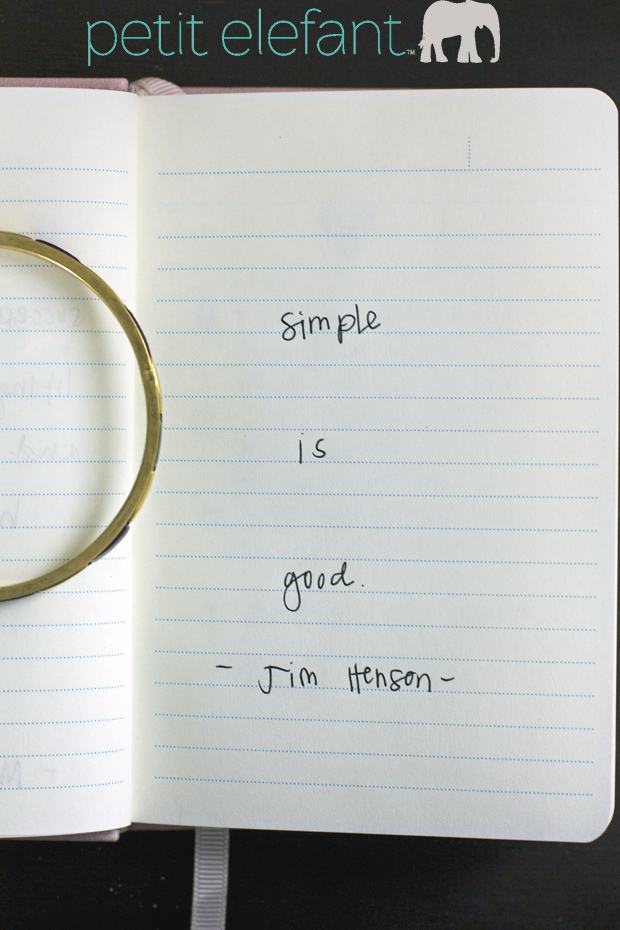 petit elefant™
simple
is
good.
- Jim Henson -